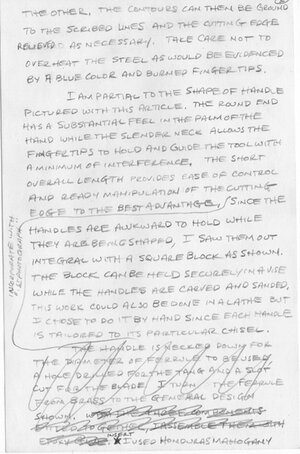 THE OTHER. THE CONTOURS CAN THEN BE GROUND
TO THE SCRIBED LINES AND THE CUTTING EDGE
RELIEVED AS NECESSARY. TAKE CARE NOT TO
OVERHEAT THE STEEL AS WOULD BE EVIDENCED
BY A BLUE COLOR AND BURNED FINGERTIPS.
I AM PARTIAL TO THE SHAPE OF HANDLE
PICTURED WITH THIS ARTICLE. THE ROUND END
HAS A SUBSTANTIAL FEEL IN THE PALM OF THE
HAND WHILE THE SLENDER NECK ALLOWS THE
FINGERTIPS TO HOLD AND GUIDE THE TOOL WITH
A MINIMUM OF INTERFERENCE. THE SHORT
OVERALL LENGTH PROVIDES EASE OF CONTROL
AND READY MANIPULATION OF THE CUTTING
EDGE TO THE BEST ADVANTAGE. SINCE THE
HANDLES ARE AWKWARD TO HOLD WHILE
THEY ARE BEING SHAPED, I SAW THEM OUT
INTEGRAL WITH A SQUARE BLOCK AS SHOWN.
THE BLOCK CAN BE HELD SECURELY IN A VISE
WHILE THE HANDLES ARE CARVED AND SANDED.
THIS WORK COULD ALSO BE DONE IN A LATHE BUT
I CHOSE TO DO IT BY HAND SINCE EACH HANDLE
IS TAILORED TO ITS PARTICULAR CHISEL.
THE HANDLE IS NECKED DOWN FOR
THE DIAMETER OF FERRULE TO BE USED,
A HOLE DRILLED FOR THE TANG AND A SLOT
CUT FOR THE BLADE. I TURN THE FERRULE
FROM BRASS TO THE GENERAL DESIGN
SHOWN. COMPONENTS
TOGETHER, ASSEMBLE THEM WITH
EPOXY GLUE. INSERT I USED HONDURAS MAHOGANY
WITH